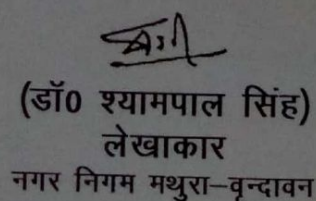 (डॉ0 श्यामपाल सिंह)
लेखाकार
नगर निगम मथुरा–वृन्दावन